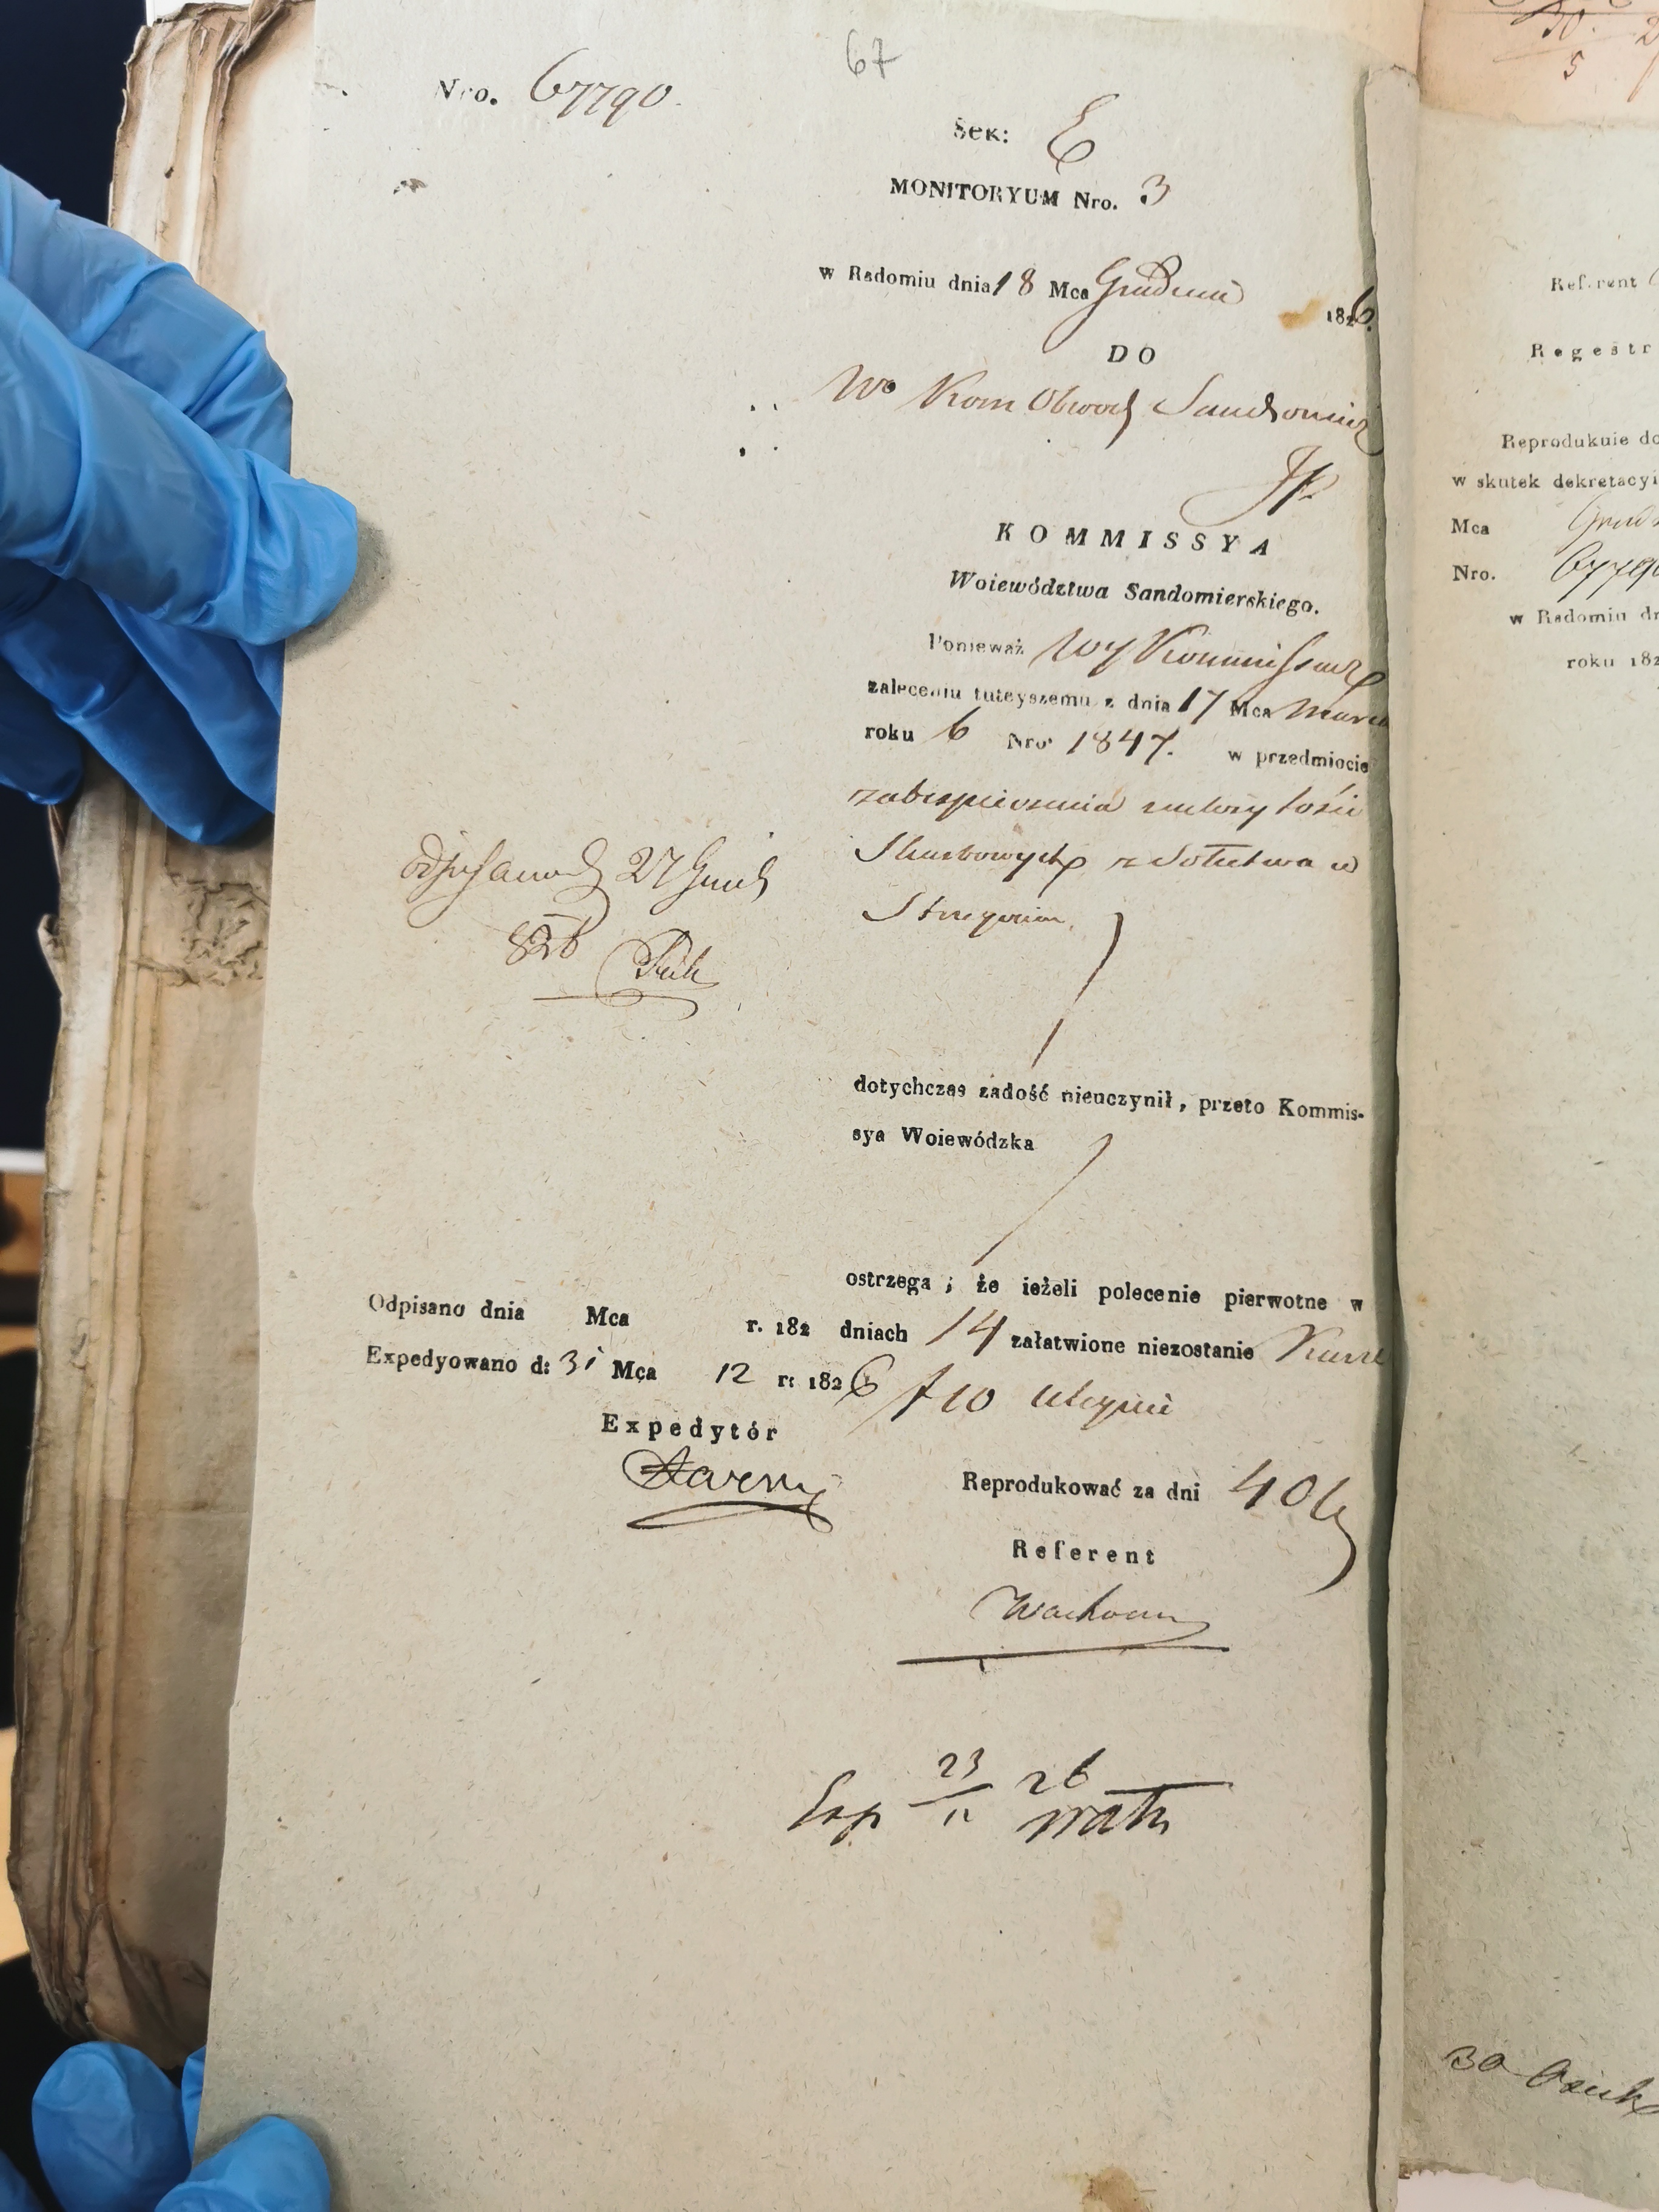 67
Nro. 67790.
Sek: E
MONITORYUM Nro. 3
w Radomiu dnia 18 Mca Grudnia 1826.
DO
Wo Kom Obwod Sandomirz
KOMMISSYA
Woiewództwa Sandomierskiego.
Ponieważ WJ Kommissarz
zaleceniu tuteyszemu z dnia 17 Mca Marca
roku 6 Nro 1847. w przedmiocie
zabespieczenia zaległości
Skarbowych z Sołectwa w
dotychczas zadość nieuczynił, przeto Kommis-
sya Woiewódzka
ostrzega, że ieżeli polecenie pierwotne w
dniach 14 załatwione niezostanie
f 10
Reprodukować za dni 40
Referent
27 Grud
826
Odpisano dnia Mca r. 182
Expedyowano d: 31 Mca 12 r: 1826
Expedytór
Exp 23 26
Referent
Regestr
Reprodukuie do
w skutek dekretacyi
Mca Grud
Nro. 6779
w Radomiu dn
roku 182
30